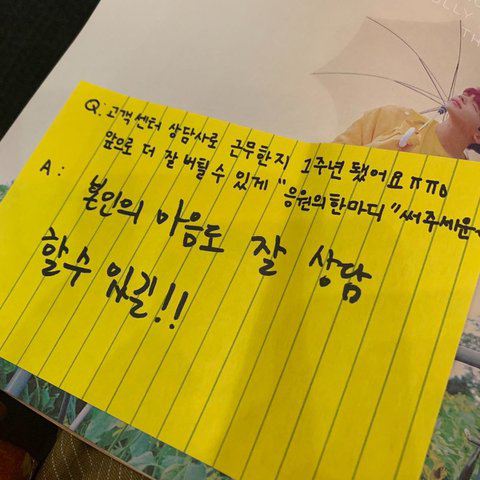 OLLY
TH
Q: 고객센터 상담사로 근무한지 1주년 됐어요ㅠㅠ
앞으로 더 잘 버틸 수 있게 "응원의한마디" 써주세윤~
A:
본인의 마음도 잘 상담
할 수 있길!!